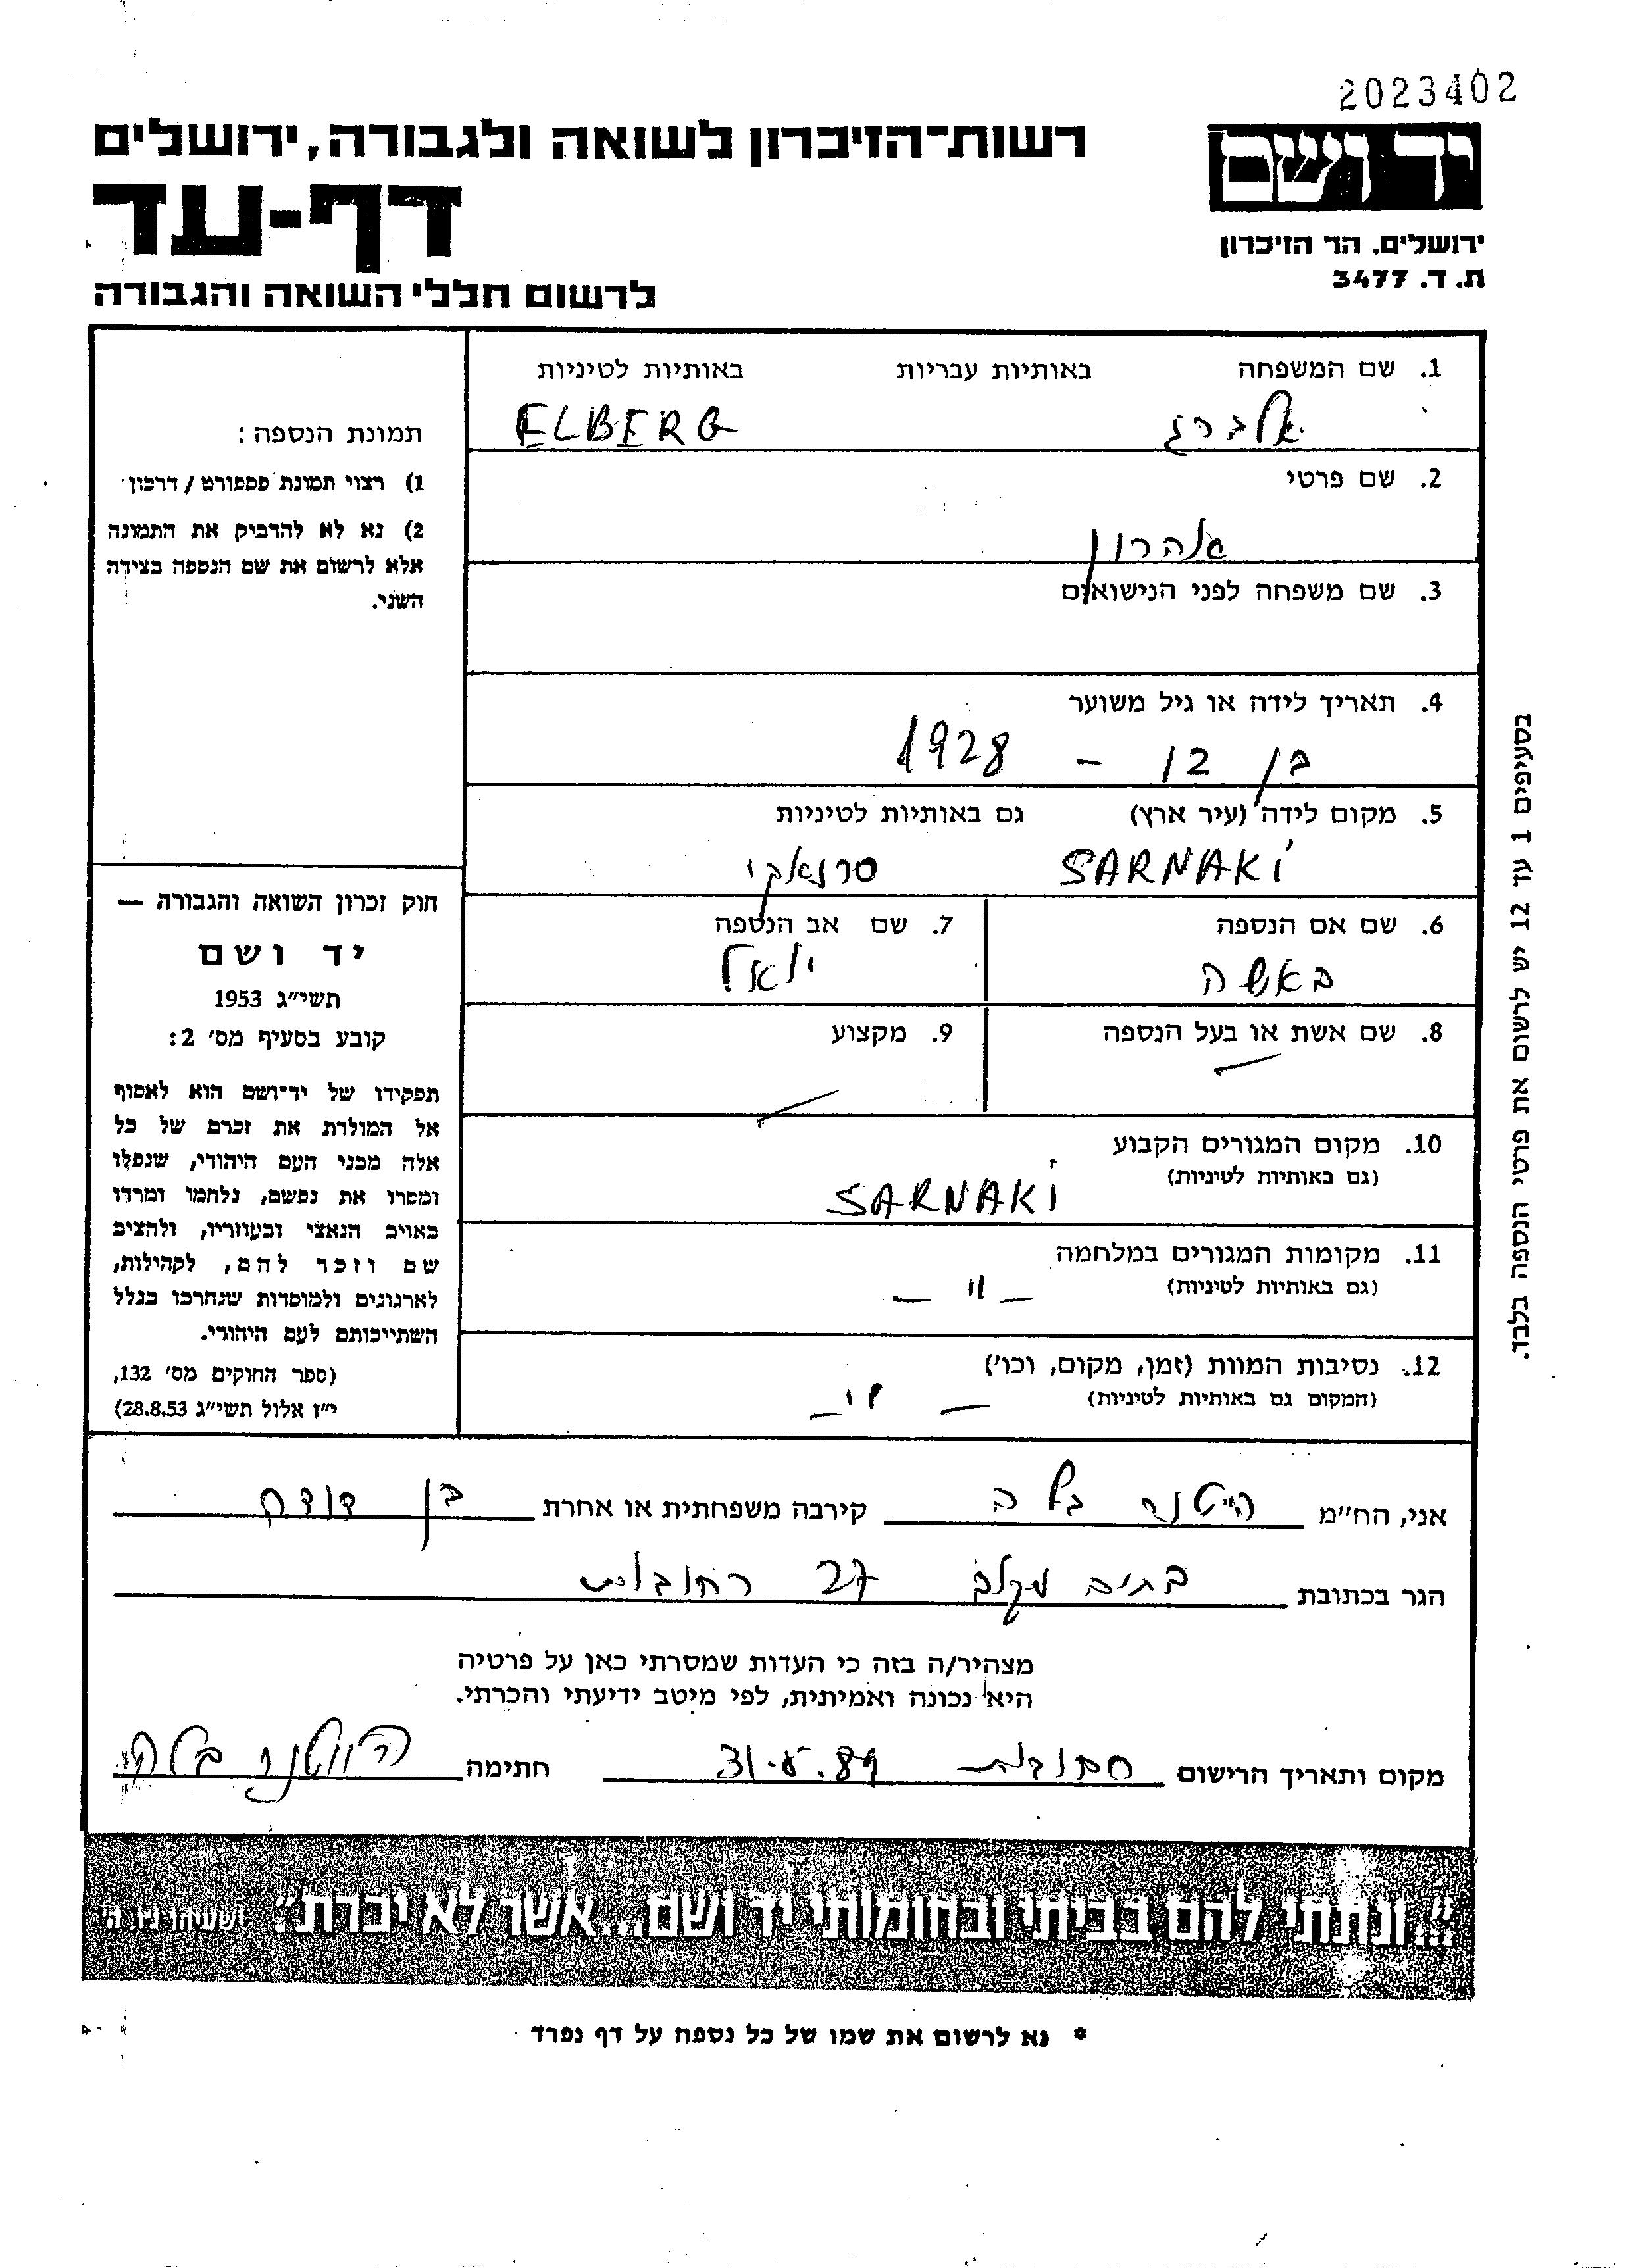 2023402
יד ושם
ירושלים, הר הזיכרון
ת. ד. 3477
רשות־הזיכרון לשואה ולגבורה, ירושלים
דף-עד
לרשום חללי השואה והגבורה
1. שם המשפחה באותיות עבריות באותיות לטיניות
אלברג ELBERG
2. שם פרטי
אהרון
3. שם משפחה לפני הנישואים
4. תאריך לידה או גיל משוער
בן 12 – 1928
5. מקום לידה (עיר ארץ) גם באותיות לטיניות
SARNAKI סרנאקי
6. שם אם הנספה 7. שם אב הנספה
באשה יואל
8. שם אשת או בעל הנספה 9. מקצוע
10. מקום המגורים הקבוע
(גם באותיות לטיניות)
SARNAKI
11. מקומות המגורים במלחמה
(גם באותיות לטיניות)
— " —
12. נסיבות המוות (זמן, מקום, וכו')
(המקום גם באותיות לטיניות)
— " —
תמונת הנספה:
1) רצוי תמונת פספורט / דרכון
2) נא לא להדביק את התמונה
אלא לרשום את שם הנספה בצידה
השני.
חוק זכרון השואה והגבורה —
יד ושם
תשי״ג 1953
קובע בסעיף מס׳ 2:
תפקידו של יד־ושם הוא לאסוף
אל המולדת את זכרם של כל
אלה מבני העם היהודי, שנפלו
ומסרו את נפשם, נלחמו ומרדו
באויב הנאצי ובעוזריו, ולהציב
שם וזכר להם, לקהילות,
לארגונים ולמוסדות שנחרבו בגלל
השתייכותם לעם היהודי.
(ספר החוקים מס׳ 132,
י״ז אלול תשי״ג 28.8.53)
בסעיפים 1 עד 12 יש לרשום את פרטי הנספה בלבד.
אני, הח״מ קירבה משפחתית או אחרת בן דודה
הגר בכתובת 27 רחובות
מצהיר/ה בזה כי העדות שמסרתי כאן על פרטיה
היא נכונה ואמיתית, לפי מיטב ידיעתי והכרתי.
מקום ותאריך הרישום רחובות 31.5.89 חתימה
״..ונתתי להם בביתי ובחומותי יד ושם...אשר לא יכרת״. ישעיהו נו, ה'
* נא לרשום את שמו של כל נספה על דף נפרד